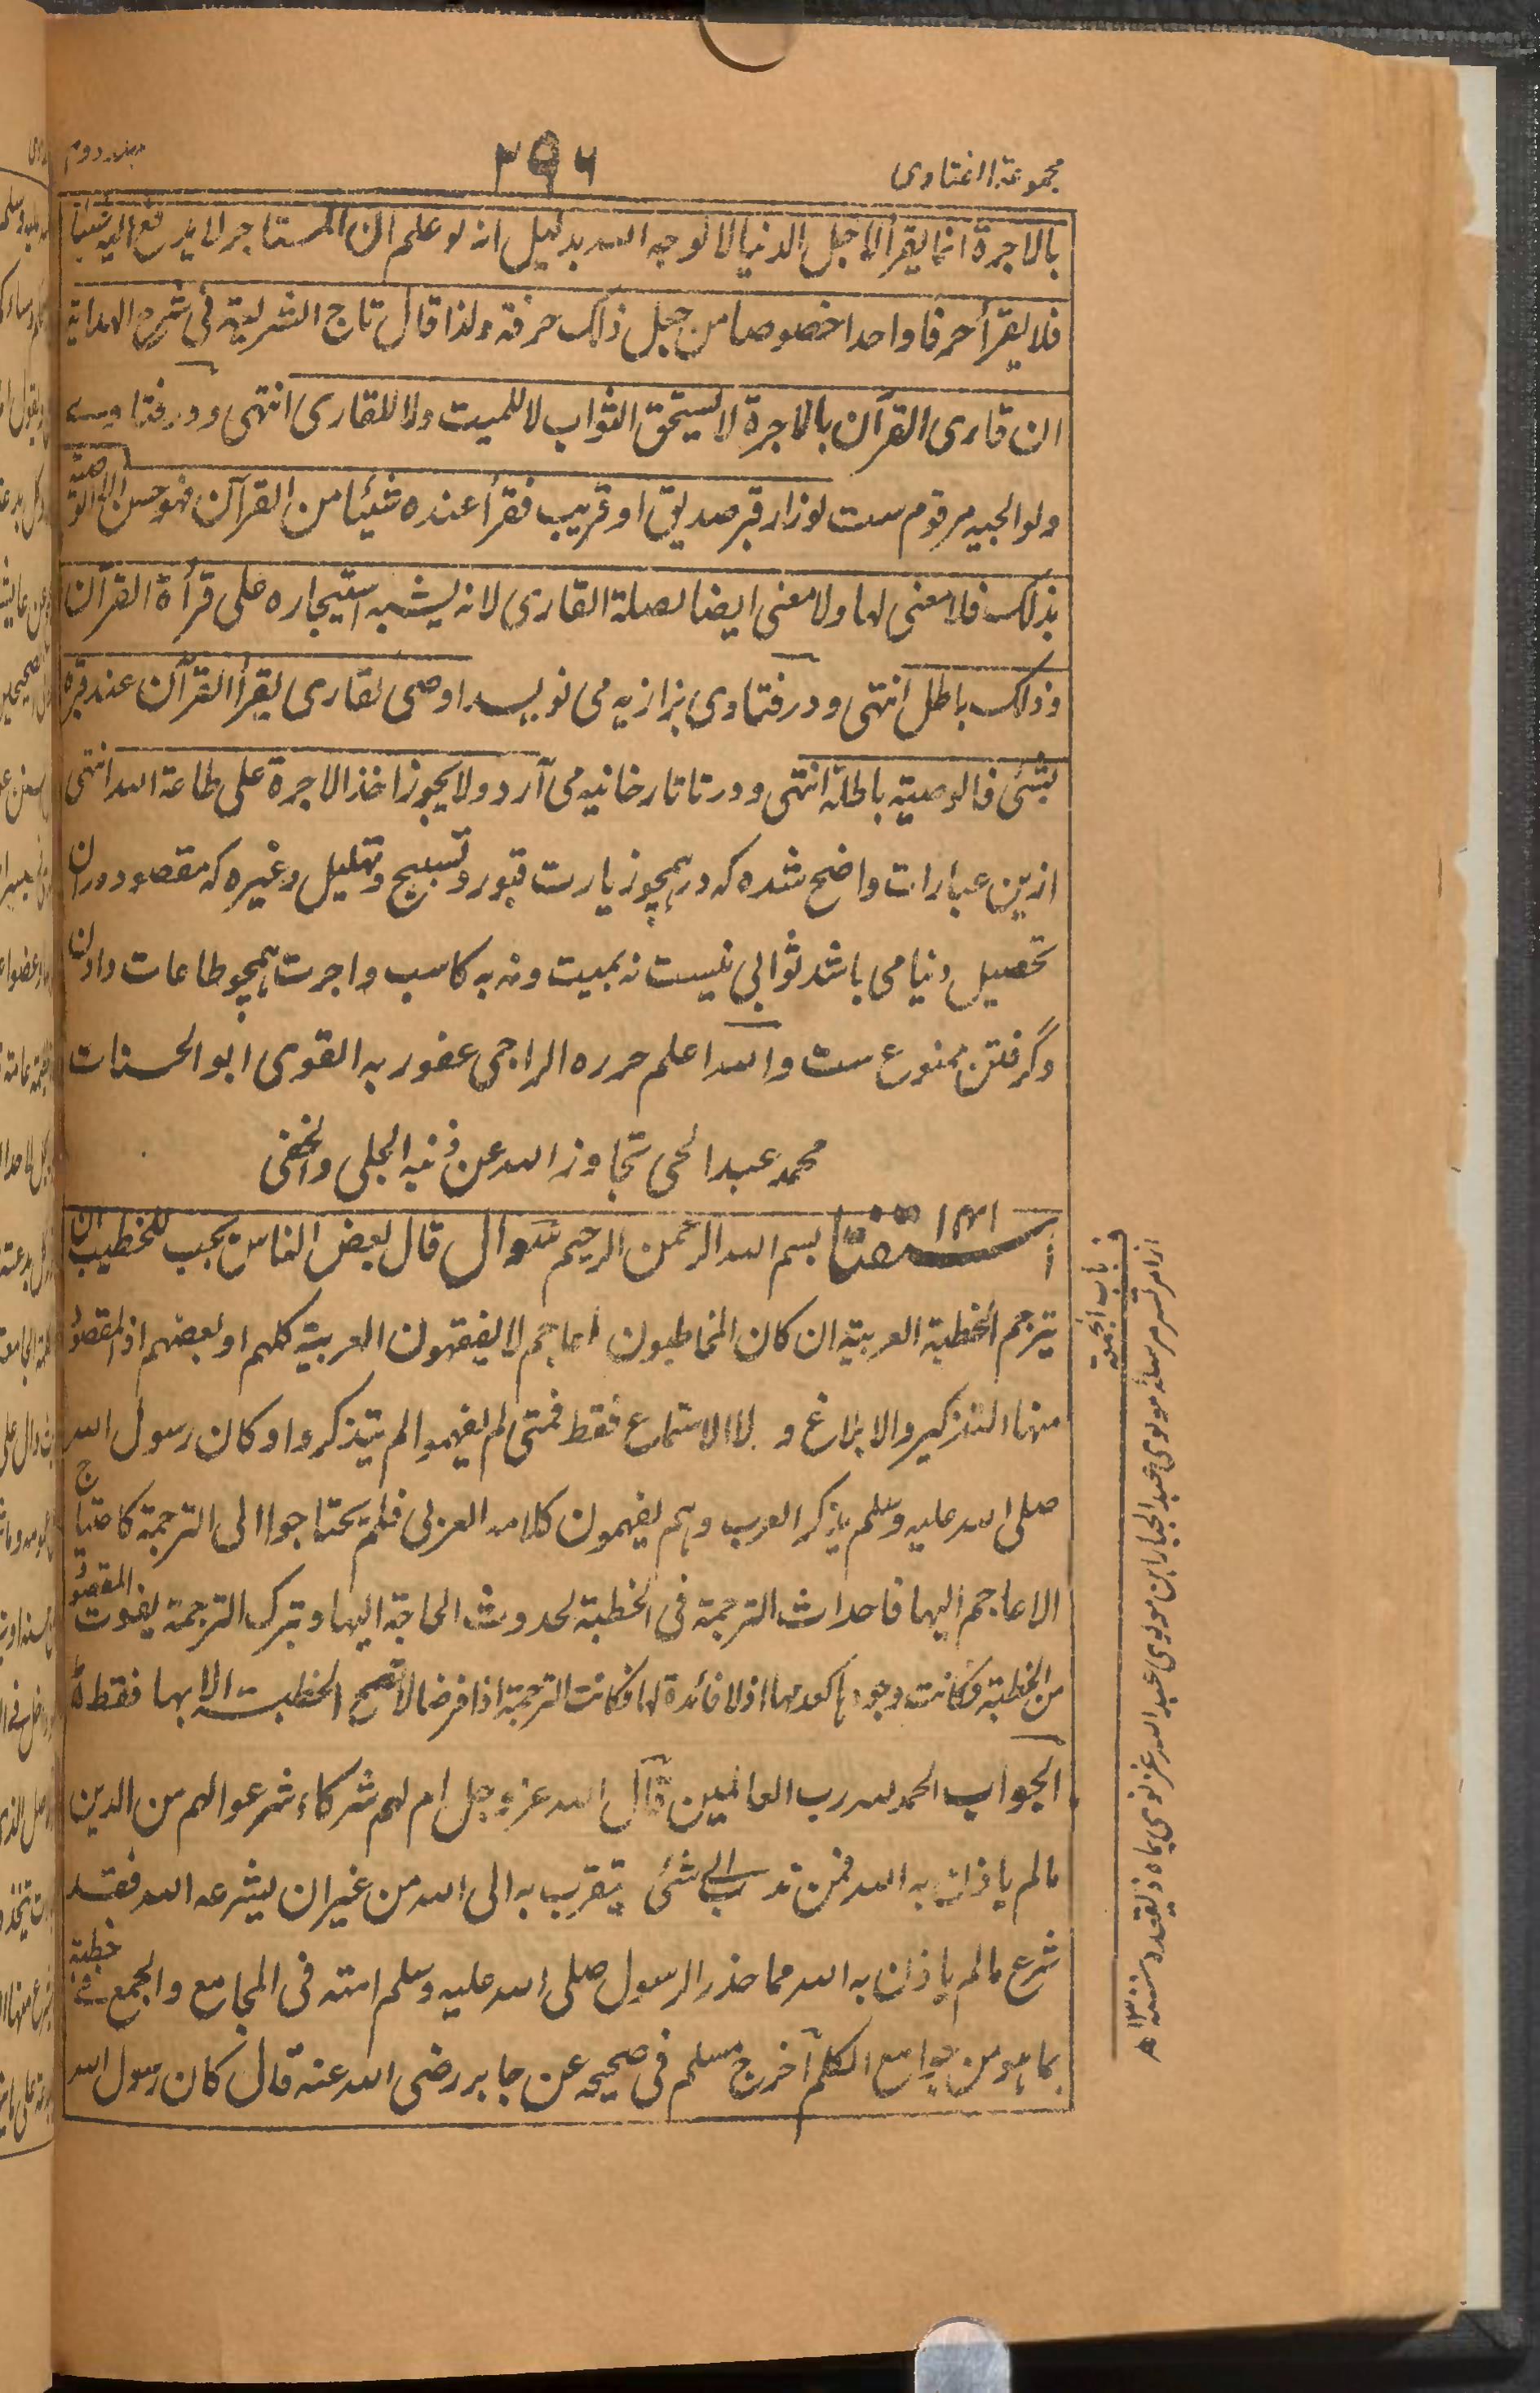 مجموعة الفتاوى
۲۹۶
جلد دوم
بالاجرة انما يقرأ لاجل الدنيا لا لوجه الله بدليل انه لو علم ان المستاجر لا يدفع اليه شيئا
فلا يقرأ حرفا واحدا خصوصا من جعل ذلك حرفته ولذا قال تاج الشريعة فى شرح الهداية
ان قارى القرآن بالاجرة لا يستحق الثواب لا للميت ولا للقارى انتهى و در فتاوے
ولوالجيه مرقوم ست لو زار قبر صديق او قريب فقرأ عنده شيئا من القرآن فهو حسن اما الوصية
بذلك فلا معنى لها ولا معنى ايضا لصلة القارى لانه يشبه استيجاره على قرأة القرآن
وذلك باطل انتهى و در فتاوى بزازيه مى نويسد اوصى لقارى يقرأ القرآن عند قبره
بشئ فالوصية باطلة انتهى و در تاتارخانيه مى آرد ولا يجوز اخذ الاجرة على طاعة الله انتهى
ازين عبارات واضح شده كه در همچو زيارت قبور و تسبيح و تهليل و غيره كه مقصود دران
تحصيل دنيا مى باشد ثوابى نيست نه بميت و نه به كاسب و اجرت همچو طاعات دادن
و گرفتن ممنوع ست والله اعلم حرره الراجى عفو ربه القوى ابو الحسنات
محمد عبد الحى تجاوز الله عن ذنبه الجلى والخفى
استفتا ۱۳۱ بسم الله الرحمن الرحيم سوال قال بعض الناس يجب للخطيب ان
يترجم الخطبة العربية ان كان المخاطبون اعاجم لا يفقهون العربية كلهم او بعضهم اذ المقصود
منها التذكير والابلاغ و لا الاستماع فقط فمتى لم يفهموا لم يتذكروا وكان رسول الله
صلى الله عليه وسلم يذكر العرب وهم يفهمون كلامه العربى فلم يحتاجوا الى الترجمة كاحتياج
الاعاجم اليها فاحداث الترجمة فى الخطبة لحدوث الحاجة اليها و بترك الترجمة يفوت المقصود
من الخطبة فكانت وجودها كعدمها اذ لا فائدة لها فكانت الترجمة اذا فرضا لا تصح الخطبة الا بها فقط
الجواب الحمد لله رب العالمين قال الله عز وجل ام لهم شركاء شرعوا لهم من الدين
ما لم ياذن به الله فمن ندب الى شئ يتقرب به الى الله من غير ان يشرعه الله فقد
شرع ما لم ياذن به الله مما حذر الرسول صلى الله عليه وسلم امته فى المجامع والجمع فى خطبة
بما هو من جوامع الكلم اخرج مسلم فى صحيحه عن جابر رضى الله عنه قال كان رسول الله
باب الجمعة
از امرتسر مرسله مولوى عبد الجبار ابن مولوى عبد الله غزنوى بماه ذيقعده سنه